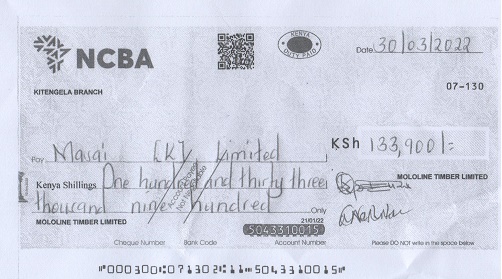 NCBA
KENYA
DUTY PAID
Date 30/03/2022
07-130
KITENGELA BRANCH
Pay Masai [K] Limited
KSh 133,900/=
Kenya Shillings One hundred and thirty three
thousand nine hundred Only
MOLOLINE TIMBER LIMITED
MOLOLINE TIMBER LIMITED
21/01/22
5043310015
Cheque Number Bank Code Account Number Please DO NOT write in the space below
"000300:071302:11"5043310015"